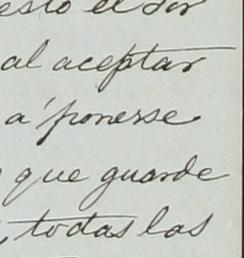 esto el Sor
al aceptar
a' ponerse
que guarde
, todas las